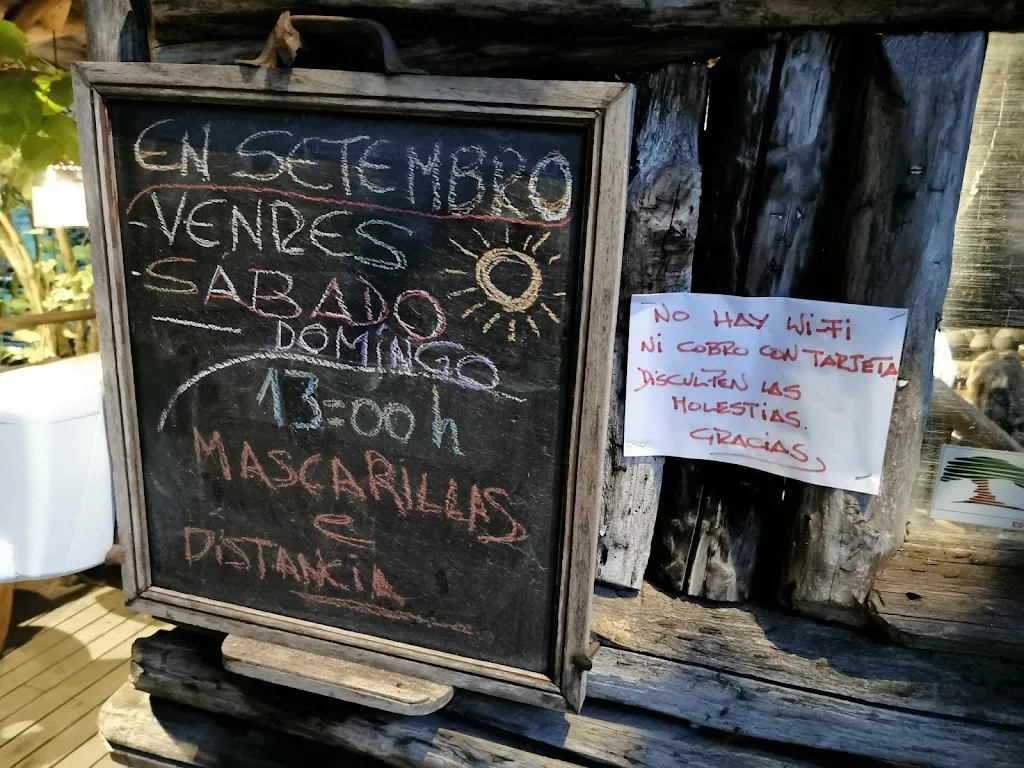 EN SETEMBRO
-VENRES
-SABADO
DOMINGO
13=00 h
MASCARILLAS
E
DISTANCIA
NO HAY Wi-Fi
Ni COBRO CON TARJETA
DiSCULPEN LAS
MOLESTiAS.
GRACiAS
ES